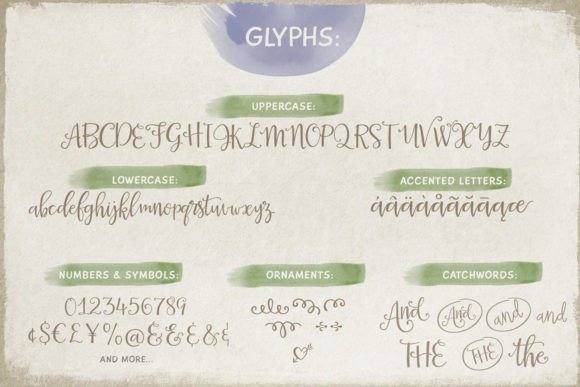 GLYPHS:
UPPERCASE:
ABCDEFGHIJKLMNOPQRSTUVWXYZ
LOWERCASE:
abcdefghijklmnopqrstuvwxyz
ACCENTED LETTERS:
áâäàåãăāąæ
NUMBERS & SYMBOLS:
0123456789
¢$€£¥%@&&&&
AND MORE...
ORNAMENTS:
CATCHWORDS:
And And and and
THE THE the